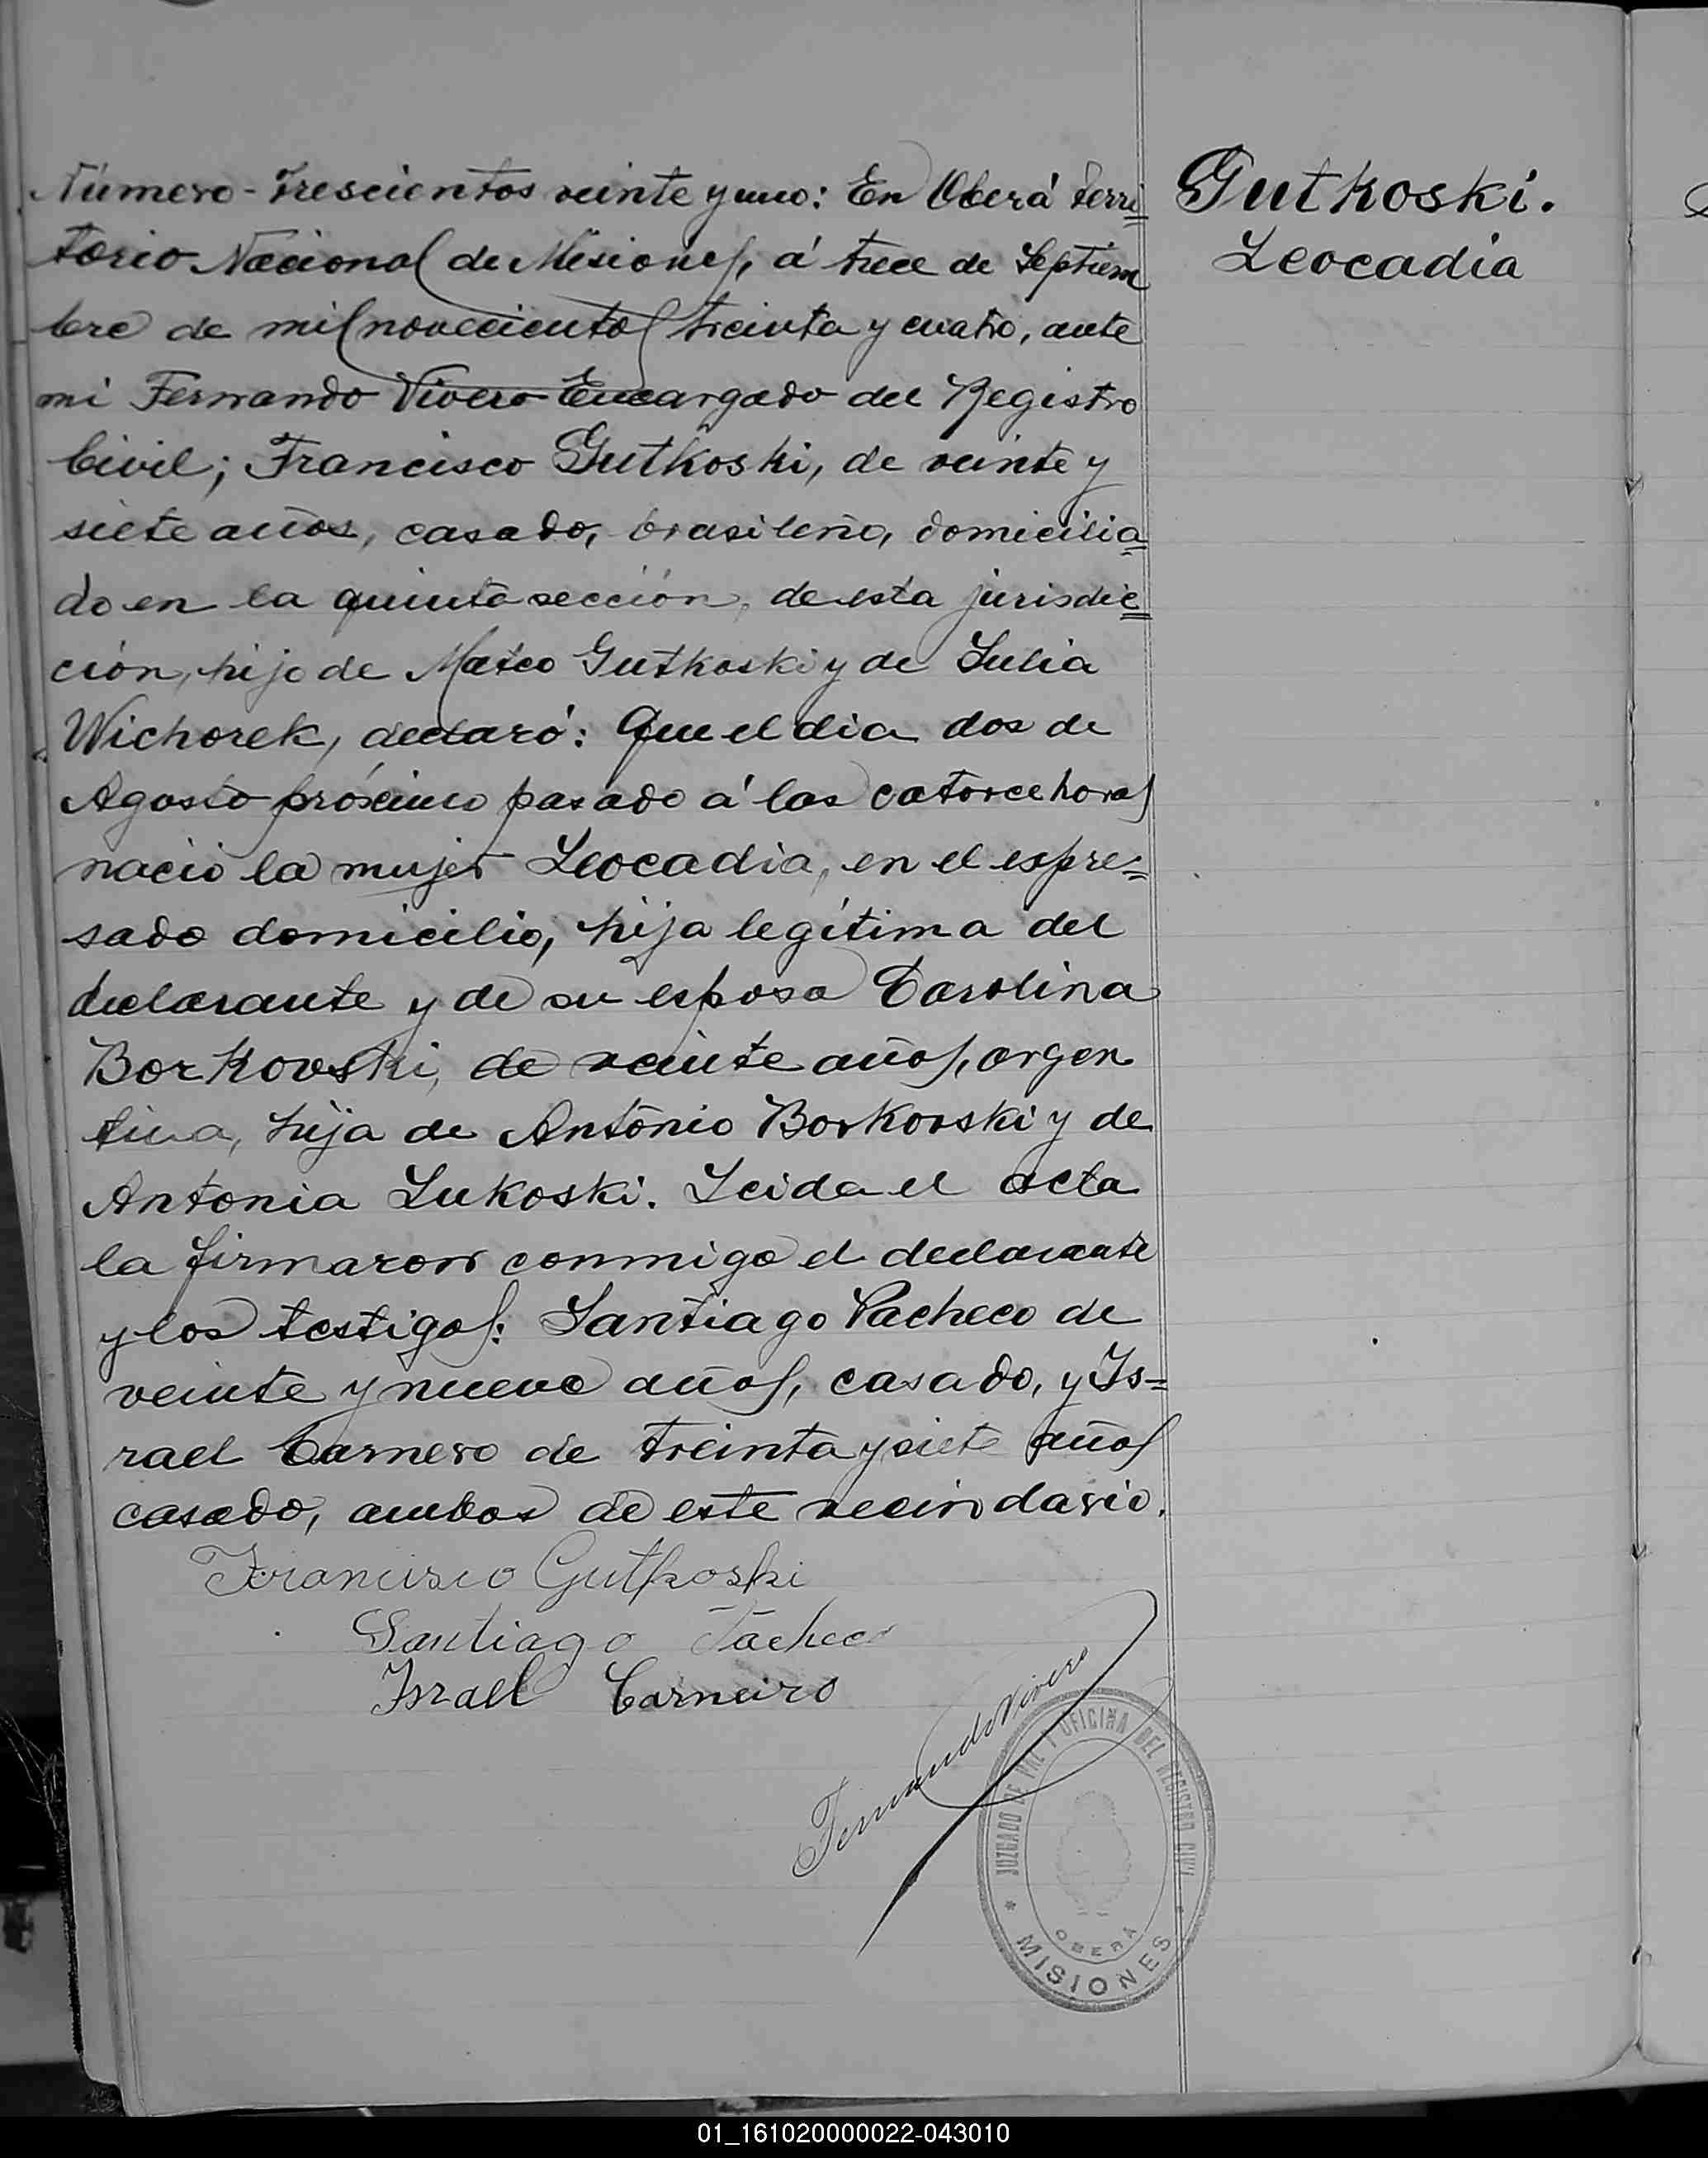 Número - Trescientos veinte y uno: En Oberá Terri=
torio Nacional de Misiones, á trece de Septiem
bre de mil novecientos treinta y cuatro, ante
mi Fernando Vivero Encargado del Registro
Civil; Francisco Gutkoski, de veinte y
siete años, casado, brasileño, domicilia=
do en la quinta sección, de esta jurisdic=
ción, hijo de Mateo Gutkoski y de Julia
Wichorek, declaró: Que el dia dos de
Agosto próximo pasado á las catorce horas
nació la mujer Leocadia, en el espre=
sado domicilio, hija legítima del
declarante y de su esposa Carolina
Borkovski, de veinte años, argen
tina, hija de Antonio Borkovski y de
Antonia Lukoski. Leida el acta
la firmaron conmigo el declarante
y los testigos: Santiago Pacheco de
veinte y nueve años, casado, y Is=
rael Carnero de treinta y siete años
casado, ambos de este vecindario.
Francisco Gutkoski
Santiago Pacheco
Israel Carneiro
Fernando Vivero
JUZGADO DE PAZ Y OFICINA DEL REGISTRO CIVIL
OBERÁ
* MISIONES *
Gutkoski.
Leocadia
01_161020000022-043010